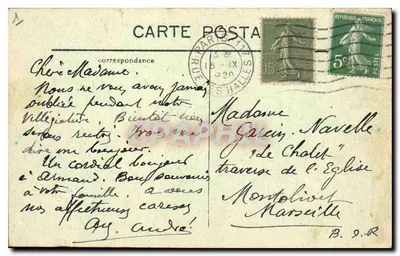 CARTE POSTALE
correspondance
PARIS 117
15 IX
1920
RUE DES HALLES
REPUBLIQUE FRANÇAISE
15c
5c
POSTES
Chère Madame.
Nous ne vous avons jamais
oubliée pendant notre
villégiature. Bientôt nous
serons
dire un bonjour.
Un cordial bonjour
à Armand. Bons souvenirs
à votre famille. à vous
nos affectueuses caresses
André
Madame
Garcin Navelle
"Le Chalet"
traverse de l'Eglise
Montolivet
Marseille
B. d. R